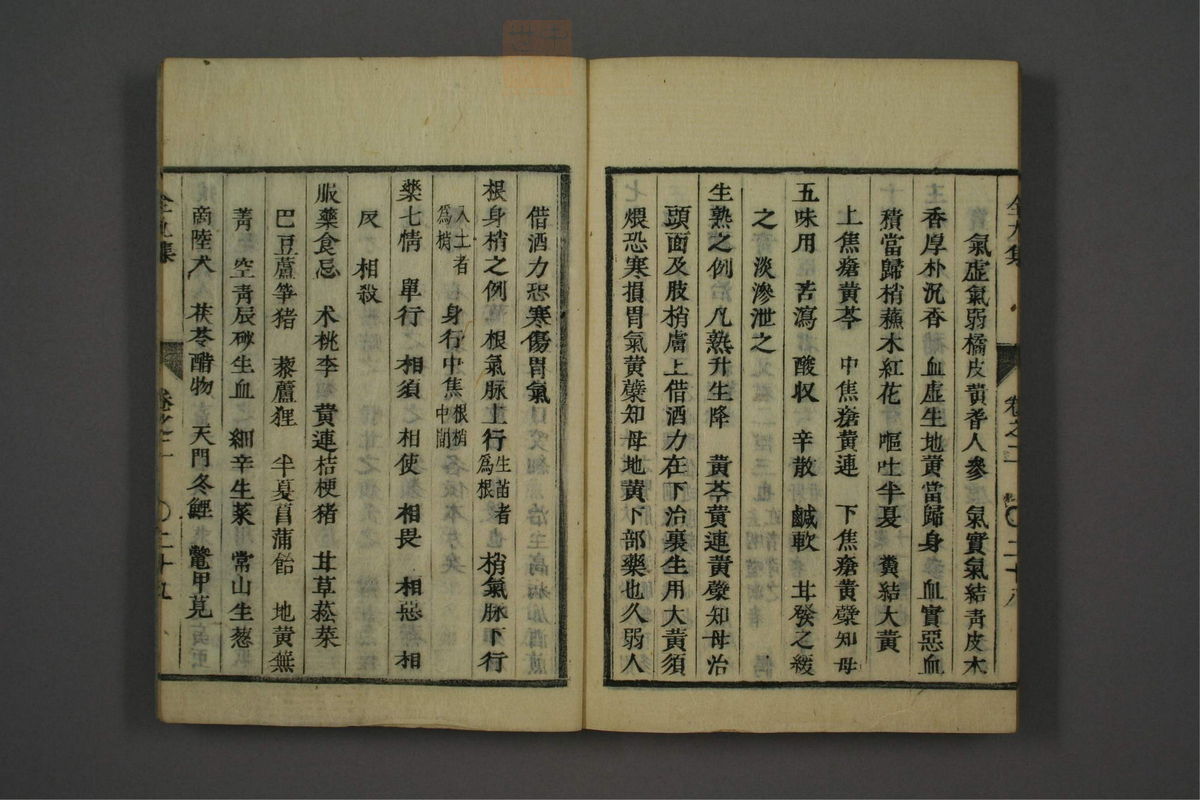 氣虛氣弱橘皮黃耆人參 氣實氣結青皮木
香厚朴沉香 血虛生地黄當歸身 血實惡血
積當歸梢蘇木紅花 嘔吐半夏 糞結大黄
上焦瘡黄芩 中焦瘡黄連 下焦瘡黄蘗知母
五味用 苦瀉 酸収 辛散 鹹軟 甘發之緩
之 淡滲泄之
生熟之例 凡熟升生降 黄芩黄連黄蘗知母治
頭面及肢梢膚上借酒力在下治裹生用大黄須
煨恐寒損胃氣黄蘗知母地黄下部藥也久弱人
卷之二 二十八
借酒力恐寒傷胃氣
根身梢之例 根氣脉上行生苗者爲根 梢氣脉下行
入土者爲梢 身行中焦根梢中間
藥七情 單行 相須 相使 相畏 相惡 相
反 相殺
服藥食忌 术桃李 黄連桔梗猪 甘草菘菜
巴豆蘆笋猪 藜蘆狸 半夏菖蒲飴 地黄蕪
菁 空青辰砂生血 細辛生菜 常山生葱
商陸犬 茯苓醋物 天門冬鯉 鱉甲莧
卷之二 二十九